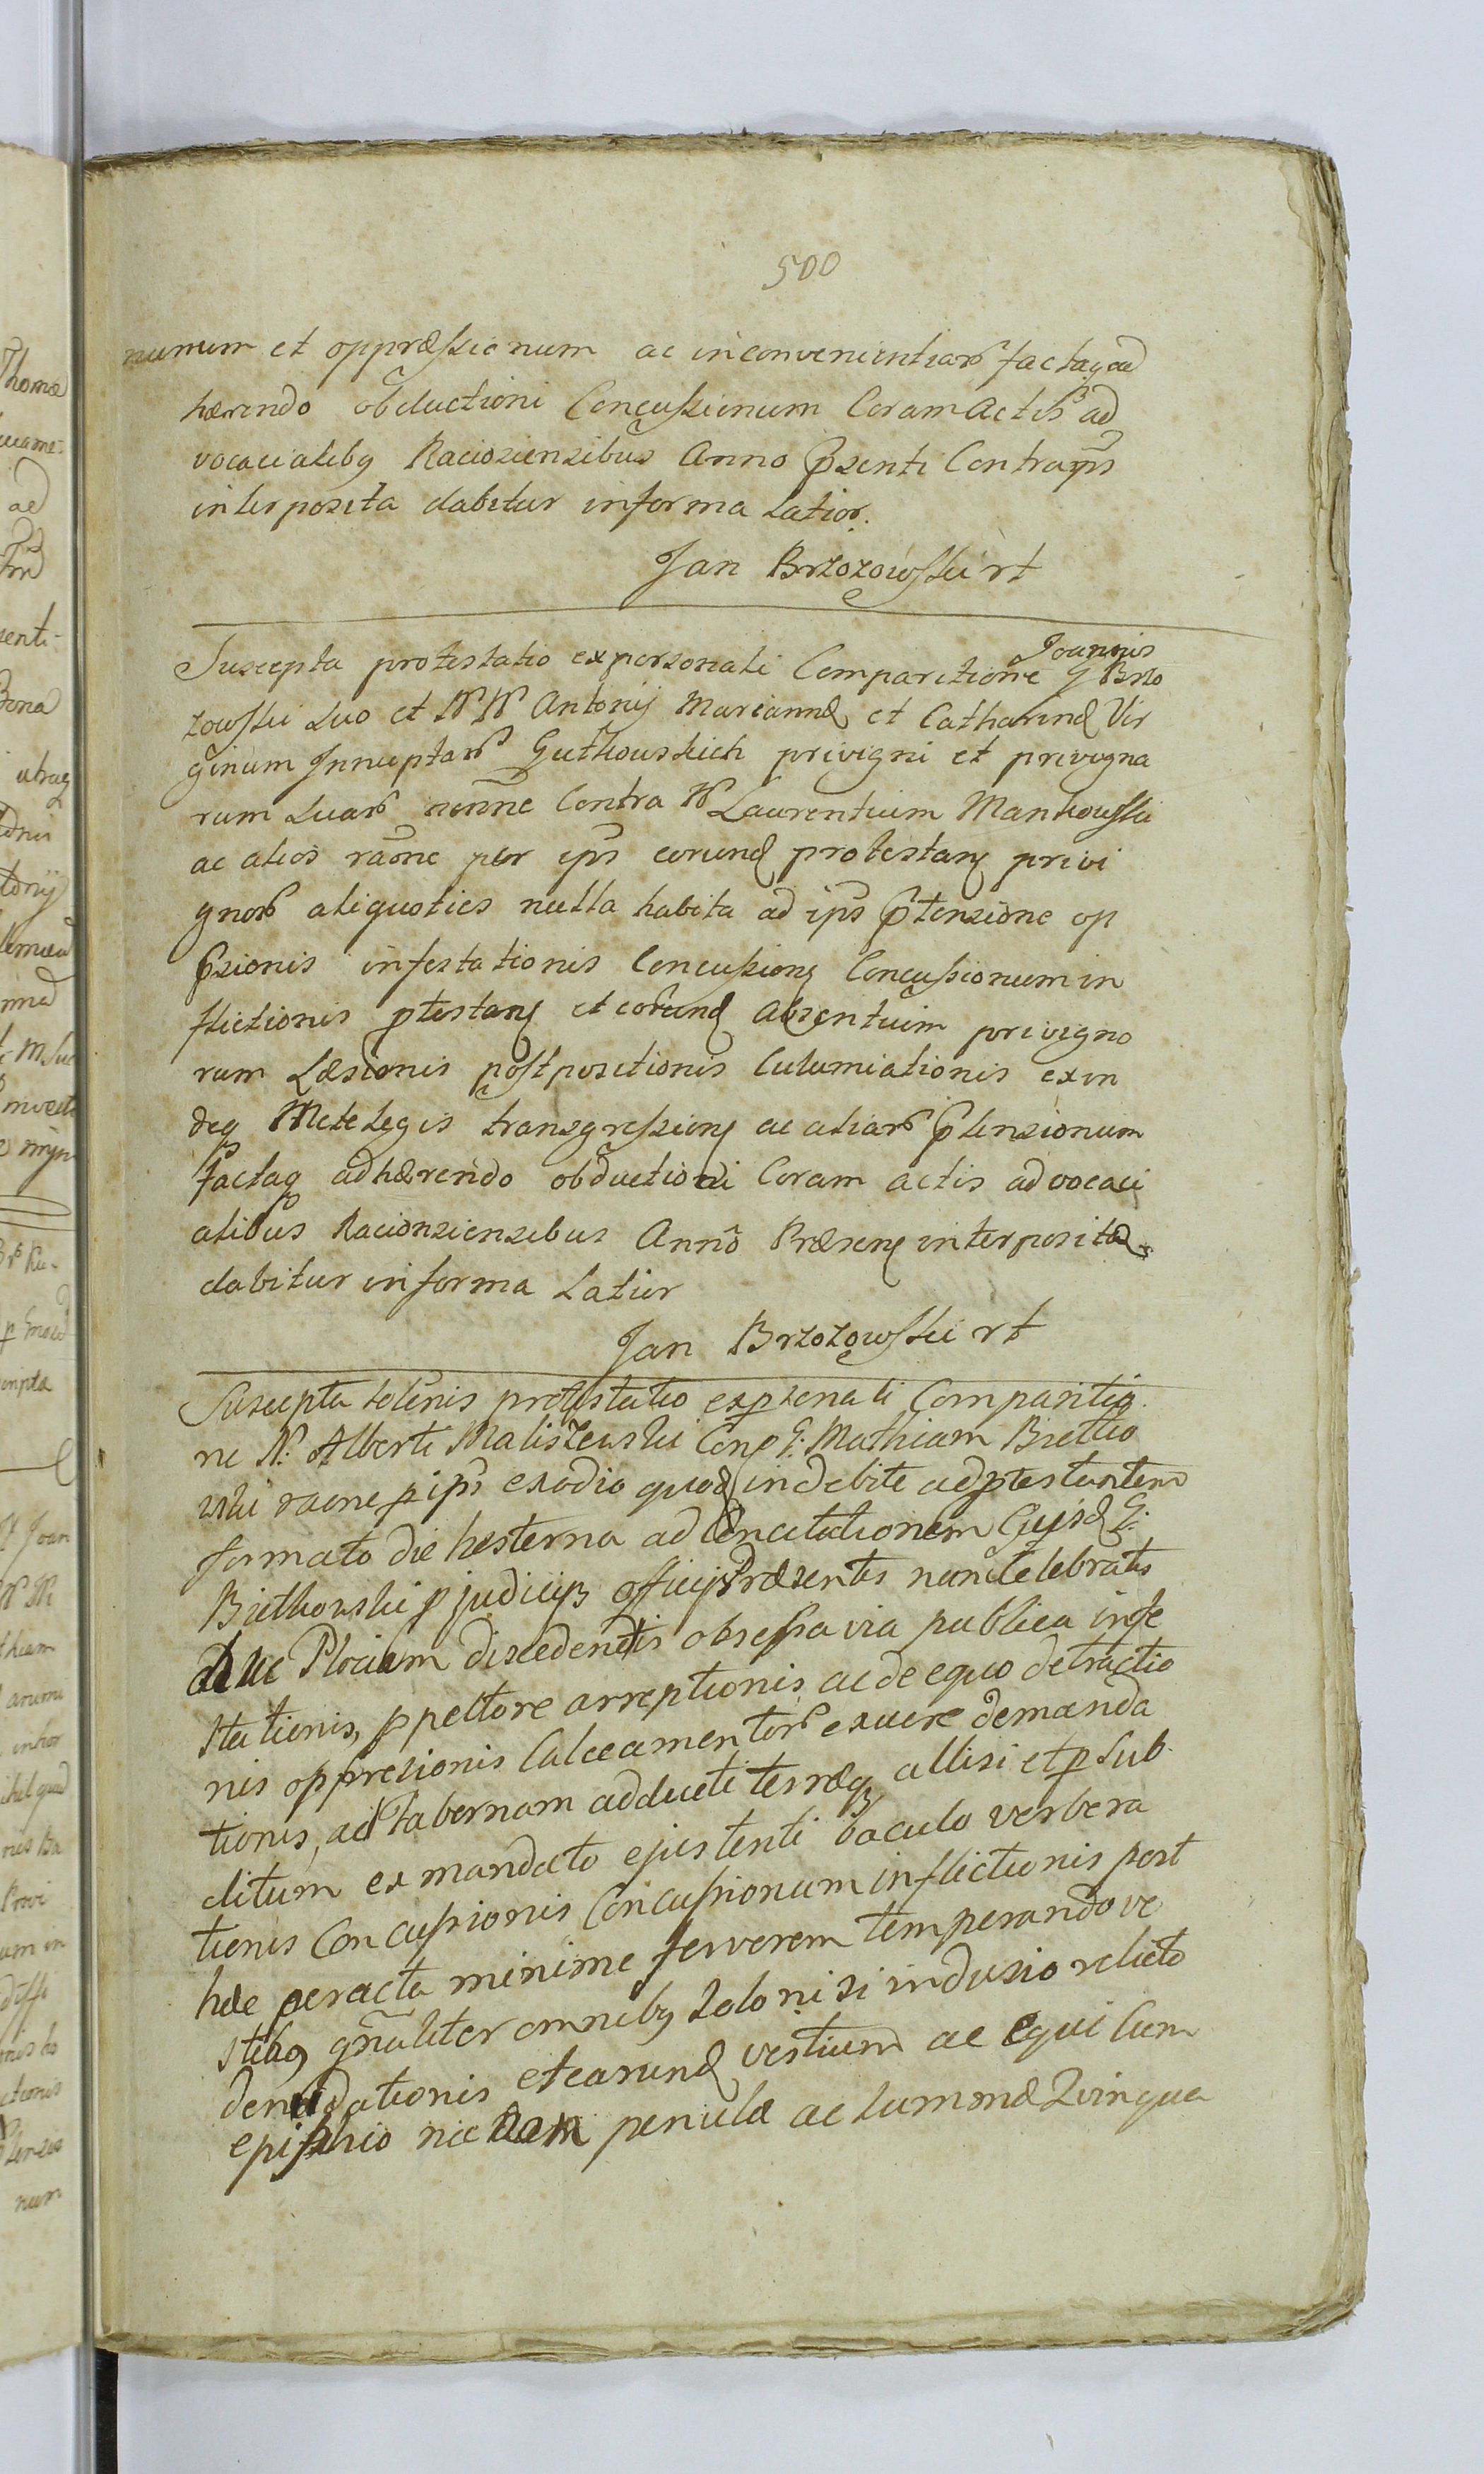 500
numum et oppræssionum ac inconvenientiarū factaq ad
hærendo obductioni Concussionum Coram Actis ad
vocacialibq Raciąziensibus Anno Prsenti Contra ips
interposita dabitur informa Latior.
Jan Brzozowski rt
Suscepta protestatio expersonali Comparitione Joannis G Brzo
zowski suo et NN Antonij Mariannæ et Catharinæ Vir
ginum Innuptarū Gutkouskich privigni et privigna
rum suarū nomne Contra N Laurentium Mankowski
ac alios raōne per ips eorund protestans privi
gnorū aliquoties nulla habita ad ips Prtensione op
Prsionis infestationis Concussions Concussionum in
flictionis ptestans et eorund Absentium privigno
rum Læsionis postpositionis Calumiationis exin
deq Mete legis transgressions ac aliarū Prtensionum
factaq adhærendo obductioni Coram actis advocaci
alibus Racionziensibus Anno Præsens interpositæ
dabitur informa Latior
Jan Brzozowski rt
Suscepta solēnis protestatio expsonali Comparitio
ne N: Alberti Maliszewski Con G: Mathiam Bietko
wski raone p ips exodio quod indebite adptestantem
formato die hesterna ad Concitationem Ejusd G:
Bietkowski p judicijs officij Præsentis nunc celebratis
Plocium discedentis obsessa via publica infe
stationis, p pectore arreptionis ac de equo detractio
nis oppresionis Calceamentorū exuere demanda
tionis, ad Tabernam adducti terræq allisi et p sub
ditum ex mandato ejus tenti baculo verbera
tionis Concussionis Concussionum inflictionis post
hæc peracta minime fervorem temperando ve
stibq gnāliter omnibq solo nisi indusio relicto
denudationis et earund vestium ac equi cum
epiphio nec non penulæ ac summæ Quinqua